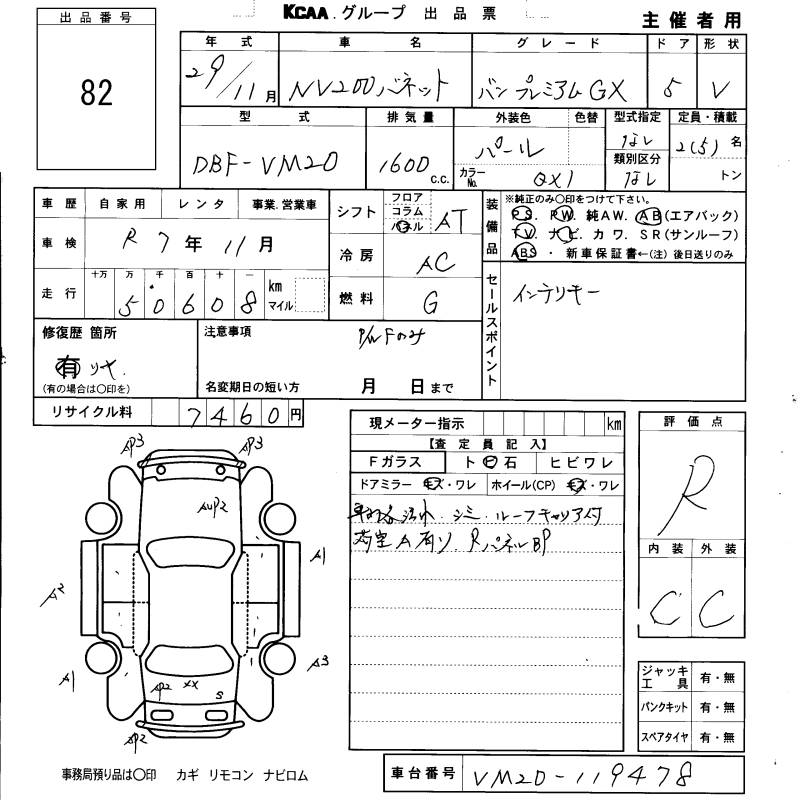 KCAA.グループ 出品票
主催者用
出品番号
82
年式 車名 グレード ドア 形状
29/11月 NV200バネット バンプレミアムGX 5 V
型式 排気量 外装色 色替 型式指定 定員・積載
DBF-VM20 1600c.c. パール なし 2(5)名
カラーNo. QX1 類別区分 なし トン
車歴 自家用 レンタ 事業.営業車
車検 R7年11月
走行 十万 万 千 百 十 一 km マイル
50608
シフト フロア コラム パネル AT
冷房 AC
燃料 G
装備品 ※純正のみ〇印をつけて下さい。
PS. PW. 純AW. AB(エアバック)
TV. ナビ. カワ. SR(サンルーフ)
ABS ・ 新車保証書←(注)後日送りのみ
セールスポイント
インテリキー
修復歴 箇所
有 リヤ.
(有の場合は〇印を)
注意事項
P/W Fのみ
名変期日の短い方 月 日まで
リサイクル料 7460円
現メーター指示 km
【査定員記入】
Fガラス ト ビ 石 ヒビワレ
ドアミラー キズ・ワレ ホイール(CP) キズ・ワレ
シミ. ルーフキャリア付
荷室A有り. RパネルBP
評価点
R
内装 外装
C C
AP3 AP3
AUP2
A1
A2
A1 A3
AP2 XX S
AP2
ジャッキ工具 有・無
パンクキット 有・無
スペアタイヤ 有・無
事務局預り品は〇印 カギ リモコン ナビロム
車台番号 VM20-119478